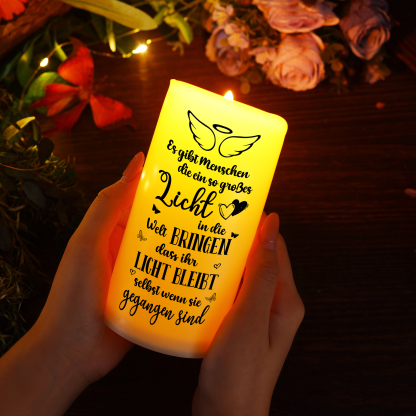 Es gibt Menschen
die ein so großes
Licht
in die
Welt BRINGEN
dass ihr
LICHT BLEIBT
selbst wenn sie
gegangen sind